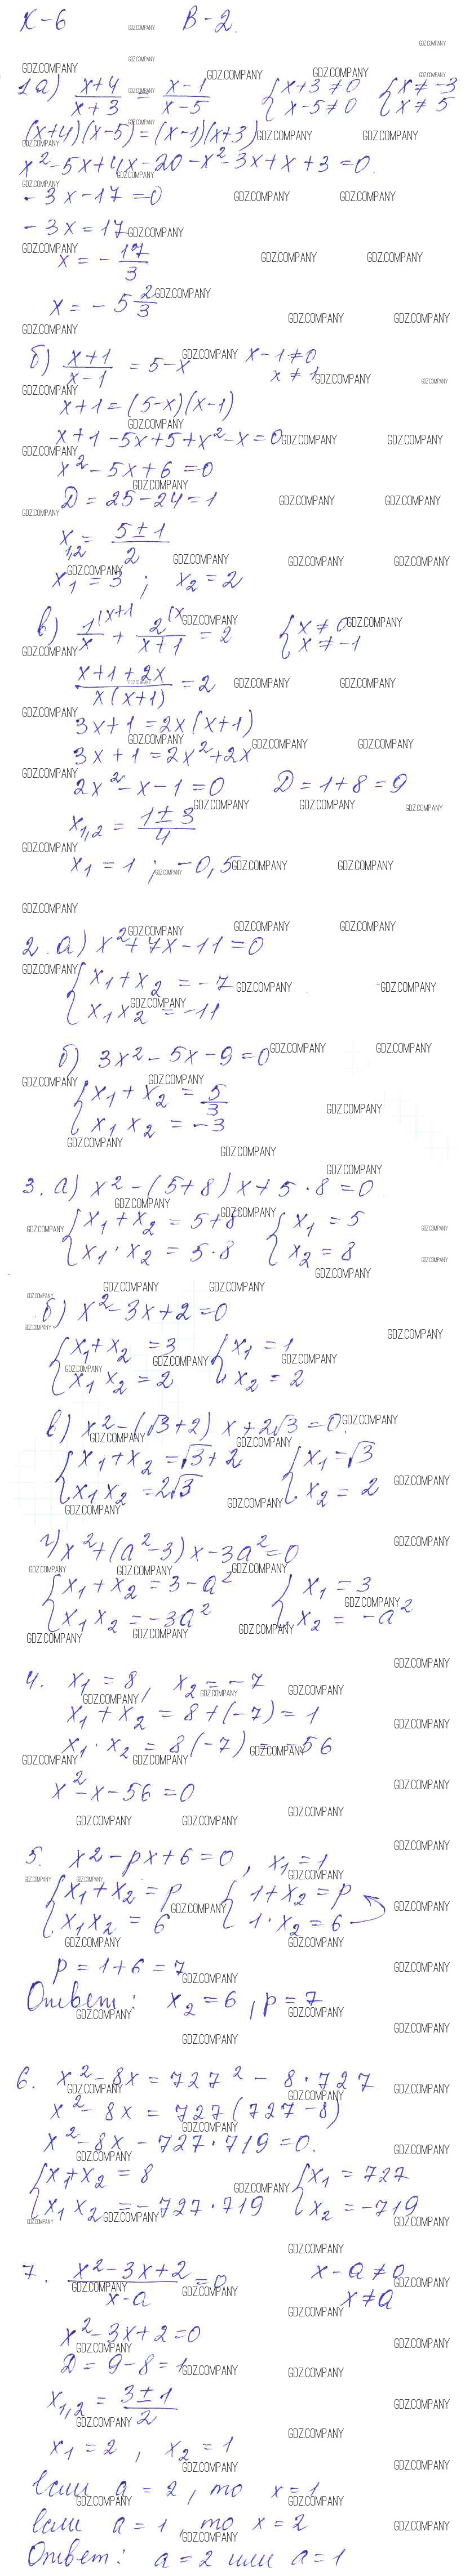 К-6 В-2.
1а) (x+4)/(x+3) = (x-1)/(x-5) { x+3≠0 { x≠-3
x-5≠0 x≠5
(x+4)(x-5)=(x-1)(x+3)
x²-5x+4x-20-x²-3x+x+3=0.
-3x-17=0
-3x=17
x=-17/3
x=-5 2/3
б) (x+1)/(x-1) = 5-x x-1≠0
x≠1
x+1=(5-x)(x-1)
x+1-5x+5+x²-x=0
x²-5x+6=0
D=25-24=1
x₁,₂ = (5±1)/2
x₁=3; x₂=2
в) 1/x (x+1 + 2/(x+1) (x = 2 { x≠0
x≠-1
(x+1+2x)/(x(x+1)) = 2
3x+1=2x(x+1)
3x+1=2x²+2x
2x²-x-1=0 D=1+8=9
x₁,₂ = (1±3)/4
x₁=1; -0,5
2. а) x²+7x-11=0
{ x₁+x₂=-7
x₁x₂=-11
б) 3x²-5x-9=0
{ x₁+x₂=5/3
x₁x₂=-3
3. а) x²-(5+8)x+5·8=0
{ x₁+x₂=5+8 { x₁=5
x₁·x₂=5·8 x₂=8
б) x²-3x+2=0
{ x₁+x₂=3 { x₁=1
x₁x₂=2 x₂=2
в) x²-(√3+2)x+2√3=0.
{ x₁+x₂=√3+2 { x₁=√3
x₁x₂=2√3 x₂=2
г) x²+(a²-3)x-3a²=0
{ x₁+x₂=3-a² { x₁=3
x₁x₂=-3a² x₂=-a²
4. x₁=8, x₂=-7
x₁+x₂=8+(-7)=1
x₁·x₂=8(-7)=-56
x²-x-56=0
5. x²-px+6=0, x₁=1
{ x₁+x₂=p { 1+x₂=p
x₁x₂=6 1·x₂=6
p=1+6=7
Ответ: x₂=6, p=7
6. x²-8x=727²-8·727
x²-8x=727(727-8)
x²-8x-727·719=0.
{ x₁+x₂=8 { x₁=727
x₁x₂=-727·719 x₂=-719
7. (x²-3x+2)/(x-a)=0 x-a≠0
x≠a
x²-3x+2=0
D=9-8=1
x₁,₂ = (3±1)/2
x₁=2, x₂=1
если a=2, то x=1
если a=1, то x=2
Ответ: a=2 или a=1
GDZ.COMPANY